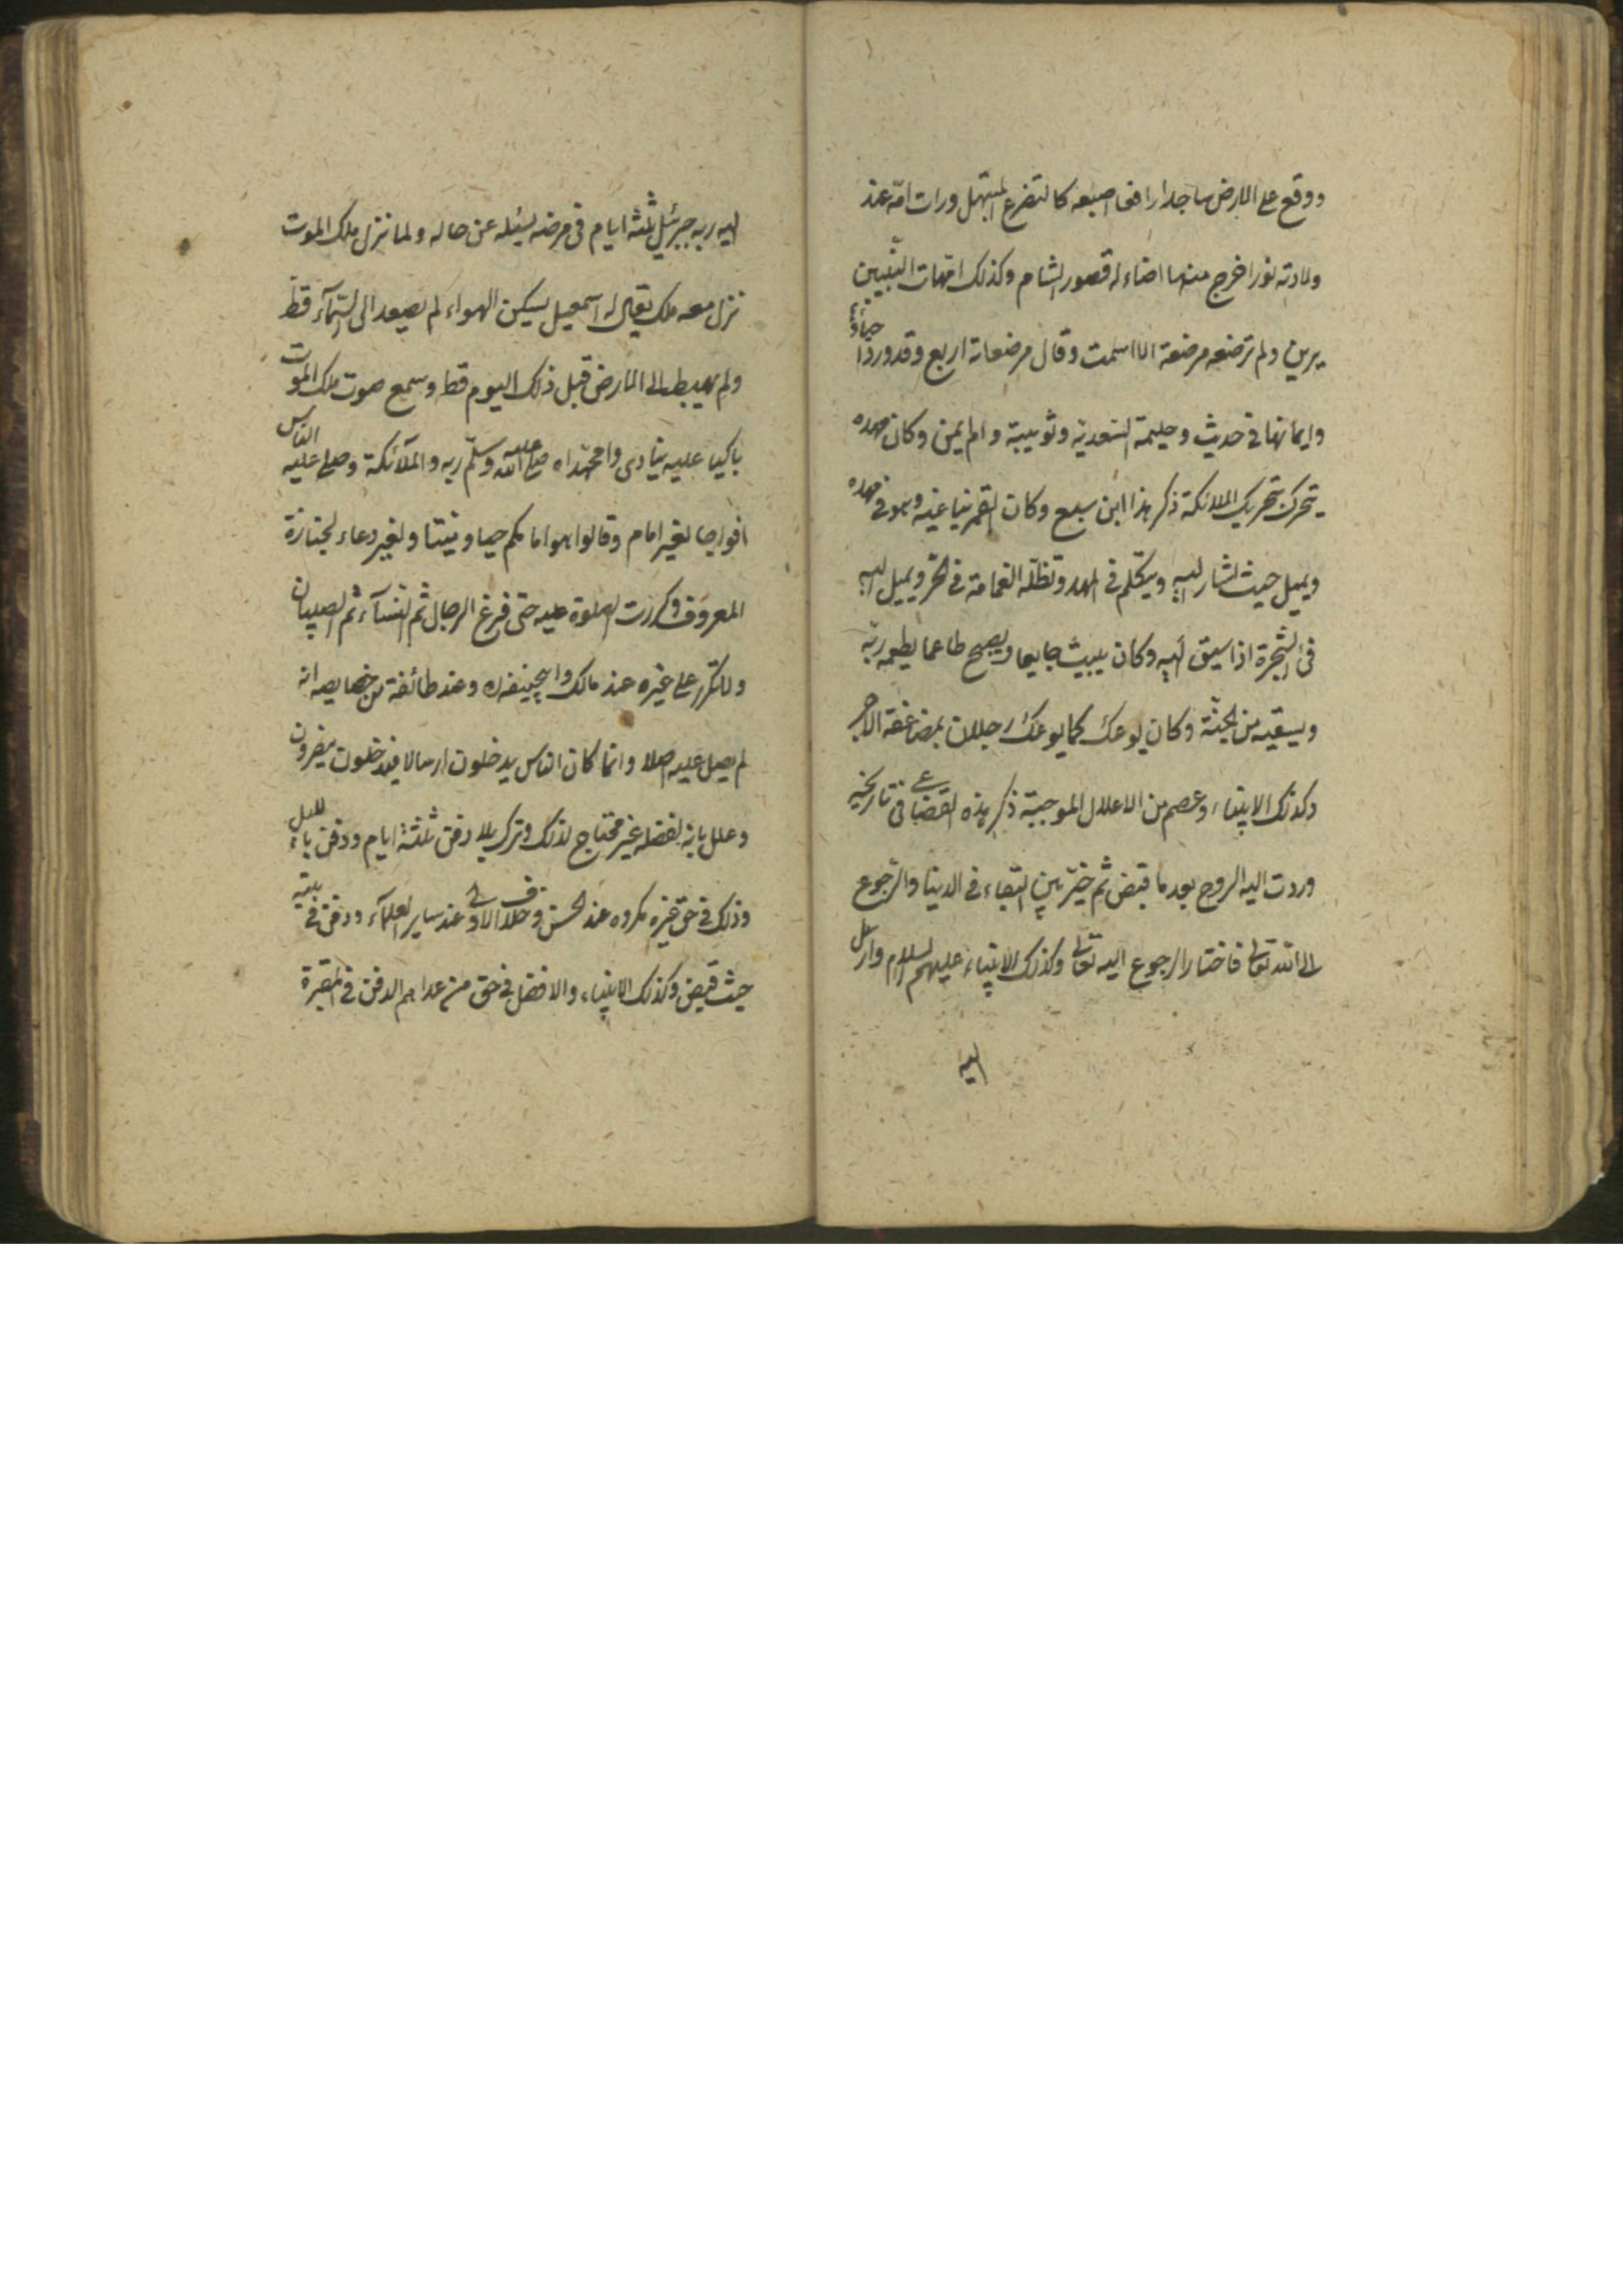 ووقع على الارض ساجدا رافعى اصبعه كالمتضرع المبتهل ورات امّه عند
ولادته نورا خرج منها اضاء له قصور الشام وكذلك امّهات النّبيين
يرين ولم ترضعه مرضعة الا اسلمت وقال مرضعاته اربع وقد ورد احياء
وايمانها فى حديث وحليمة السّعدية وثويبة وام ايمن وكان مهده
يتحرك بتحريك الملائكة ذكر هذا ابن سبع وكان القمر يناغيه وهو فى مهده
ويميل حيث اشار اليه ويتكلم فى المهد وتظلّه الغمامة فى الحرّ ويميل اليه
فى الشّجرة اذا سبق اليه وكان يبيت جايعا ويصبح طاعما يطعمه ربّه
ويسقيه من الجنّة وكان يوعك كما يوعك رجلان بمضاعفة الاجر
وكذلك الانبياء وعصم من الاعلال الموجبة ذكر هذه القضاعى فى تاريخه
وردت اليه الروح بعد ما قبض ثم خيّر بين البقاء فى الدنيا والرّجوع
الى الله تعالى فاختار الرجوع اليه تعالى وكذلك الانبياء عليهم السلام وارسل
اليه
اليه ربه جبرئيل ثلثة ايام فى مرضه يسئله عن حاله ولما نزل ملك الموت
نزل معه ملك يقال له اسمعيل يسكن الهواء لم يصعد الى السّمآء قط
ولم يهبط الى الارض قبل ذلك اليوم قط وسمع صوت ملك الموت
باكيا عليه ينادى وامحمّداه صلى الله عليه وسلّم ربه والملآئكة وصلى عليه الناس
افواجا لغير امام وقالوا هو امامكم حيا وميتا ولغير دعاء الجنازة
المعروف وكررت الصلوة عليه حتى فرغ الرجال ثم النسآء ثم الصبيان
ولا تكرر على غيره عند مالك وابيحنيفه ره وعند طائفة من خصايصه انه
لم يصل عليه اصلا وانما كان الناس يدخلون ارسالا فيدخلون
وعلل بانه لفضله غير محتاج لذلك وترك بلا دفن ثلثة ايام ودفن بالليل
وذلك فى حق غيره مكروه عند الحسن وخلاف الاولى عند ساير العلمآء ودفن فى بيته
حيث قبض وكذلك الانبياء والافضل فى حق من عداهم الدفن فى المقبرة